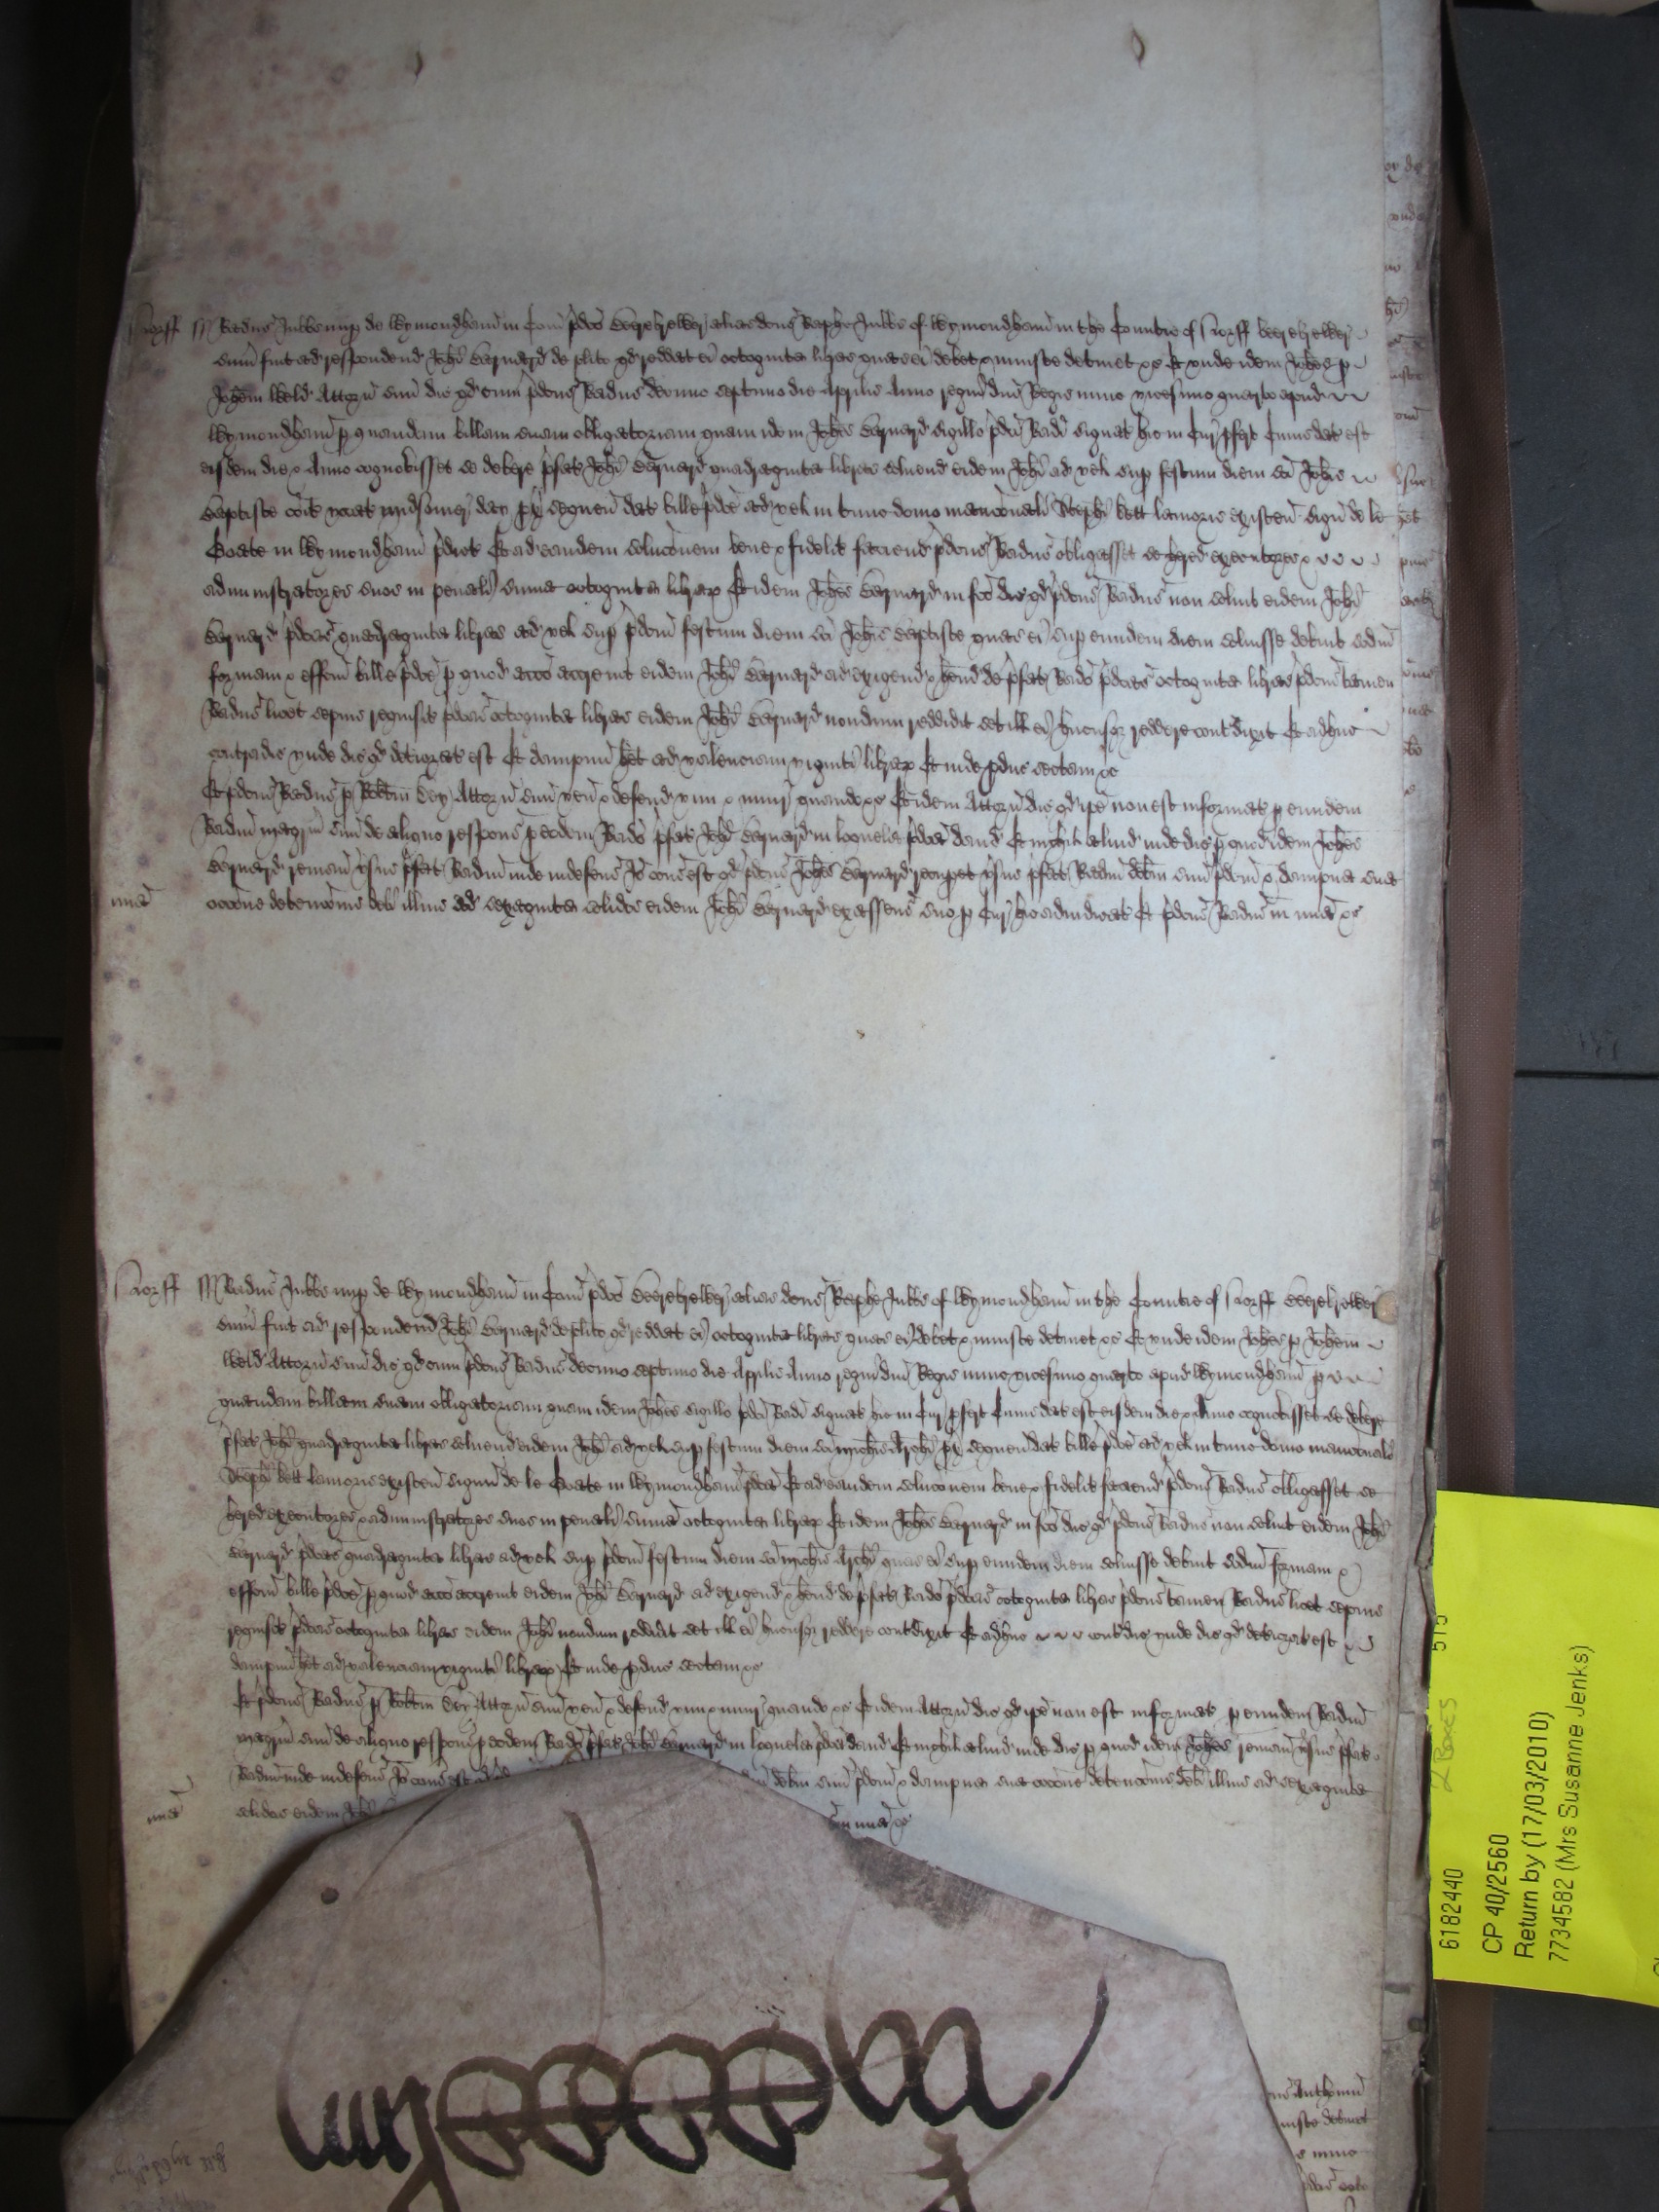 Norff Radus Jubbe nup de Wymondham in Com pdco Berebrewer alias dcus Raphe Jubbe of Wymondham in the Countie of Norff beerebrewer
sum fuit ad respondend Johi Bernard de plito qd reddat ei octoginta libras quas ei debet & iniuste detinet &c Et unde idem Johes p
Johem Weld Attorn suum dic qd cum pdcus Radus decimo septimo die Aprilis Anno regni dni Regis nunc vicesimo quarto apud
Wymondham p quandam billam suam obligatoriam quam idem Johes Bernard sigillo pdci Radi signat hic in Cur pfert Cuius dat est
eisdem die & Anno cognovisset se debere pfat Johi Bernard quadraginta libras solvend eidem Johi ad vel sup festum diem sci Johis
Baptiste coit vocat midsomer day px sequen dat bille pdce ad vel in tunc domo mancionali Stephi kett lanionis existen signu de le
Boate in Wymondham pdict Et ad eandem solucionem bene & fidelit faciend pdcus Radus obligasset se hered executores &
administratores suos in penali summa octoginta librar Et idem Johes Bernard in fco dic qd pdcus Radus non solvit eidem Johi
Bernard pdcas quadraginta libras ad vel sup pdcum festum diem sci Johis Baptiste quas ei sup eundem diem solvisse debuit scdm
formam & effcum bille pdce p quod acco accrevit eidem Johi Bernard ad exigend & hend de pfat Rado pdcas octoginta libras pdcus tamen
Radus licet sepius requisit pdcas octoginta libras eidem Johi Bernard nondum reddidit set ill ei hucusq reddere contradixit Et adhuc
contradic unde dic qd deteriorat est Et dampnu het ad valenciam viginti librar Et inde pduc sectam &c
Et pdcus Radus p Robtm Dey Attorn suum ven & defend vim & iniur quando &c Et idem Attorn dic qd ipe non est informat p eundem
Radum magrm suum de aliquo respons p eodem Rado pfat Johi Bernard in loquela pdca dand Et nichil aliud inde dic p quod idem Johes
Bernard remanet vsus pfat Radum inde indefens Io cons est qd pdcus Johes Bernard recupet vsus pfat Radum debm suum pdcum & dampna sua
mia occone detencionis debi illius ad sexaginta solidos eidem Johi Bernard ex assensu suo p Cur hic adiudicat Et pdcus Radus in mia &c
Norff Radus Jubbe nup de Wymondham in Com pdco Beerebrewer alias dcus Raphe Jubbe of Wymondham in the Countie of Norff Beerebrewer
sum fuit ad respondend Johi Bernard de plito qd reddat ei octoginta libras quas ei debet & iniuste detinet &c Et unde idem Johes p Johem
Weld Attorn suum dic qd cum pdcus Radus decimo septimo die Aprilis Anno regni dni Regis nunc vicesimo quarto apud Wymondham p
quandam billam suam obligatoriam quam idem Johes sigillo pdci Radi signat hic in Cur pfert Cuius dat est eisdem die & Anno cognovisset se debere
pfat Johi quadraginta libras solvend eidem Johi ad vel sup festum diem sci Michis Archi px sequen dat bille pdce ad vel in tunc domo mancionali
Stephi kett lanionis existen signum de le Boate in Wymondham pdca Et ad eandem solucionem bene & fidelit faciend pdcus Radus obligasset se
hered executores & administratores suos in penali summa octoginta librar Et idem Johes Bernard in fco dic qd pdcus Radus non solvit eidem Johi
Bernard pdcas quadraginta libras ad vel sup pdcum festum diem sci Michis Archi quas ei sup eundem diem solvisse debuit scdm formam &
effcum bille pdce p quod acco accrevit eidem Johi Bernard ad exigend & hend de pfat Rado pdcas octoginta libras pdcus tamen Radus licet sepius
requisit pdcas octoginta libras eidem Johi nondum reddidit set ill ei hucusq reddere contradixit Et adhuc contradic unde dic qd deteriorat est &
dampnu het ad valenciam viginti librar Et inde pduc sectam &c
Et pdcus Radus p Robtm Dey Attorn suum ven & defend vim & iniur quando &c Et idem Attorn dic qd ipe non est informat p eundem Radum
magrm suum de aliquo respons p eodem Rado pfat Johi Bernard in loquela pdca dand Et nichil aliud inde dic p quod idem Johes remanet vsus pfat
Radum inde indefens Io cons est qd debm suum pdcum & dampna sua occone detencionis debi illius ad sexaginta
mia solidos eidem Johi in mia &c
6182440
CP 40/2560
Return by (17/03/2010)
7734582 (Mrs Susanne Jenks)